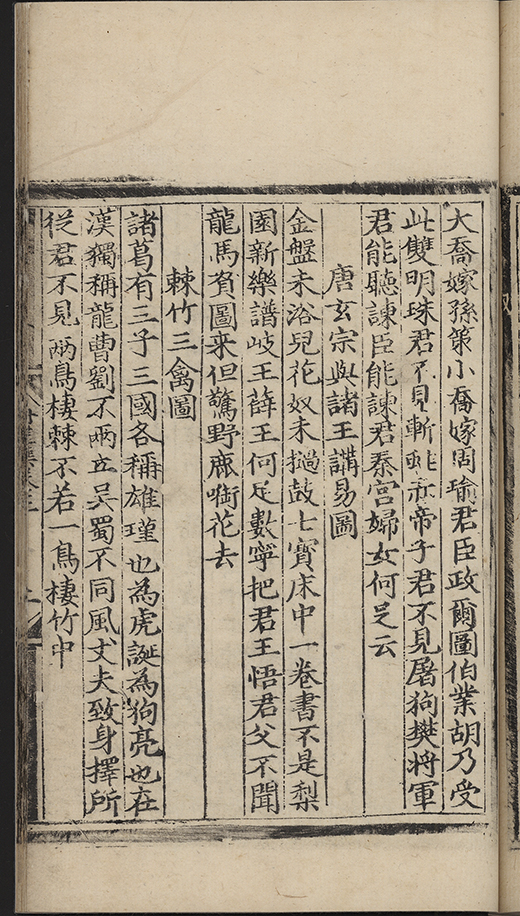 大喬嫁孫策小喬嫁周瑜君臣政爾圖伯業胡乃受
此雙明珠君不見斬虵赤帝子君不見屠狗樊將軍
君能聽諫臣能諫君秦宮婦女何足云
唐玄宗與諸王講易圖
金盤未浴兒花奴未撾鼓七寶床中一卷書不是梨
園新樂譜岐王薛王何足數寧把君王悟君父不聞
龍馬負圖来但驚野鹿啣花去
棘竹三禽圖
諸葛有三子三國各稱雄瑾也為虎誕為狗亮也在
漢獨稱龍曹劉不兩立吳蜀不同風丈夫致身擇所
從君不見兩鳥棲棘不若一鳥棲竹中